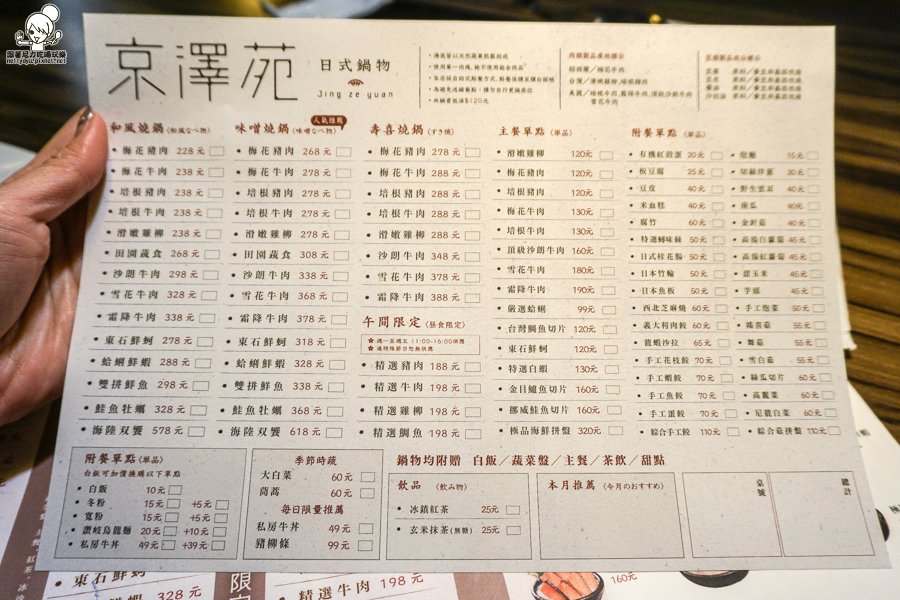 跟著尼力吃喝玩樂
nellydyu@pixnet.net
京澤苑
日式鍋物
Jing ze yuan
和風燒鍋(和風なべ物)
梅花豬肉 228元
梅花牛肉 238元
培根豬肉 238元
培根牛肉 238元
滑嫩雞柳 238元
田園蔬食 268元
沙朗牛肉 298元
雪花牛肉 328元
霜降牛肉 338元
東石鮮蚵 278元
蛤蜊鮮蝦 288元
雙拼鮮魚 298元
鮭魚牡蠣 328元
海陸双饗 578元
人氣推薦
味噌燒鍋(味噌なべ物)
梅花豬肉 268元
梅花牛肉 278元
培根豬肉 278元
培根牛肉 278元
滑嫩雞柳 278元
田園蔬食 308元
沙朗牛肉 338元
雪花牛肉 368元
霜降牛肉 378元
東石鮮蚵 318元
蛤蜊鮮蝦 328元
雙拼鮮魚 338元
鮭魚牡蠣 368元
海陸双饗 618元
壽喜燒鍋(すき燒)
梅花豬肉 278元
梅花牛肉 288元
培根豬肉 288元
培根牛肉 288元
滑嫩雞柳 288元
沙朗牛肉 348元
雪花牛肉 378元
霜降牛肉 388元
午間限定(昼食限定)
週一至週五 11:00-16:00供應
遇特殊節日恕無供應
精選豬肉 188元
精選牛肉 198元
精選雞柳 198元
精選鯛魚 198元
主餐單點(単品)
滑嫩雞柳 120元
梅花豬肉 120元
培根豬肉 120元
梅花牛肉 130元
培根牛肉 130元
頂級沙朗牛肉 160元
雪花牛肉 180元
霜降牛肉 190元
嚴選蛤蜊 99元
台灣鯛魚切片 120元
東石鮮蚵 120元
特選白蝦 130元
金目鱸魚切片 160元
挪威鮭魚切片 160元
極品海鮮拼盤 320元
附餐單點(単品)
有機紅殼蛋 20元
板豆腐 25元
豆皮 40元
米血糕 40元
腐竹 60元
特選蟳味絲 50元
日式桂花腸 50元
日本竹輪 50元
日本魚板 50元
西北芝麻燒 60元
義大利肉餃 60元
龍蝦沙拉 65元
手工花枝餃 70元
手工蝦餃 70元
手工魚餃 70元
手工蛋餃 70元
綜合手工餃 110元
15元
30元
野生雲耳 40元
南瓜 40元
金針菇 40元
高揚白蘿蔔 45元
高揚紅蘿蔔 45元
甜玉米 45元
芋頭 45元
手工炮菜 50元
鴻喜菇 55元
舞菇 55元
雪白菇 55元
絲瓜切片 60元
高麗菜 60元
尼龍白菜 60元
綜合菇拼盤 110元
附餐單點(単品)
白飯可加價換購以下單點
白飯 10元
冬粉 15元 +5元
寬粉 15元 +5元
讚岐烏龍麵 20元 +10元
私房牛丼 49元 +39元
季節時蔬
大白菜 60元
茼蒿 60元
每日限量推薦
私房牛丼 49元
豬柳條 99元
鍋物均附贈 白飯/蔬菜盤/主餐/茶飲/甜點
飲品 (飲み物)
冰鎮紅茶 25元
玄米抹茶(無糖) 25元
本月推薦 (今月のおすすめ)
桌號
總計
東石鮮蚵
328元
精選牛肉 198元
160元